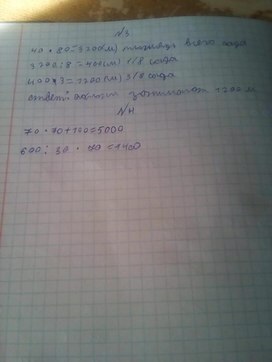 №3
40 · 80 = 3200 (м) площадь всего сада
3200 : 8 = 400 (м) 1/8 сада
400 × 3 = 1200 (м) 3/8 сада
ответ: занимают 1200 м
№4
70 · 70 + 100 = 5000
600 : 30 · 70 = 1400